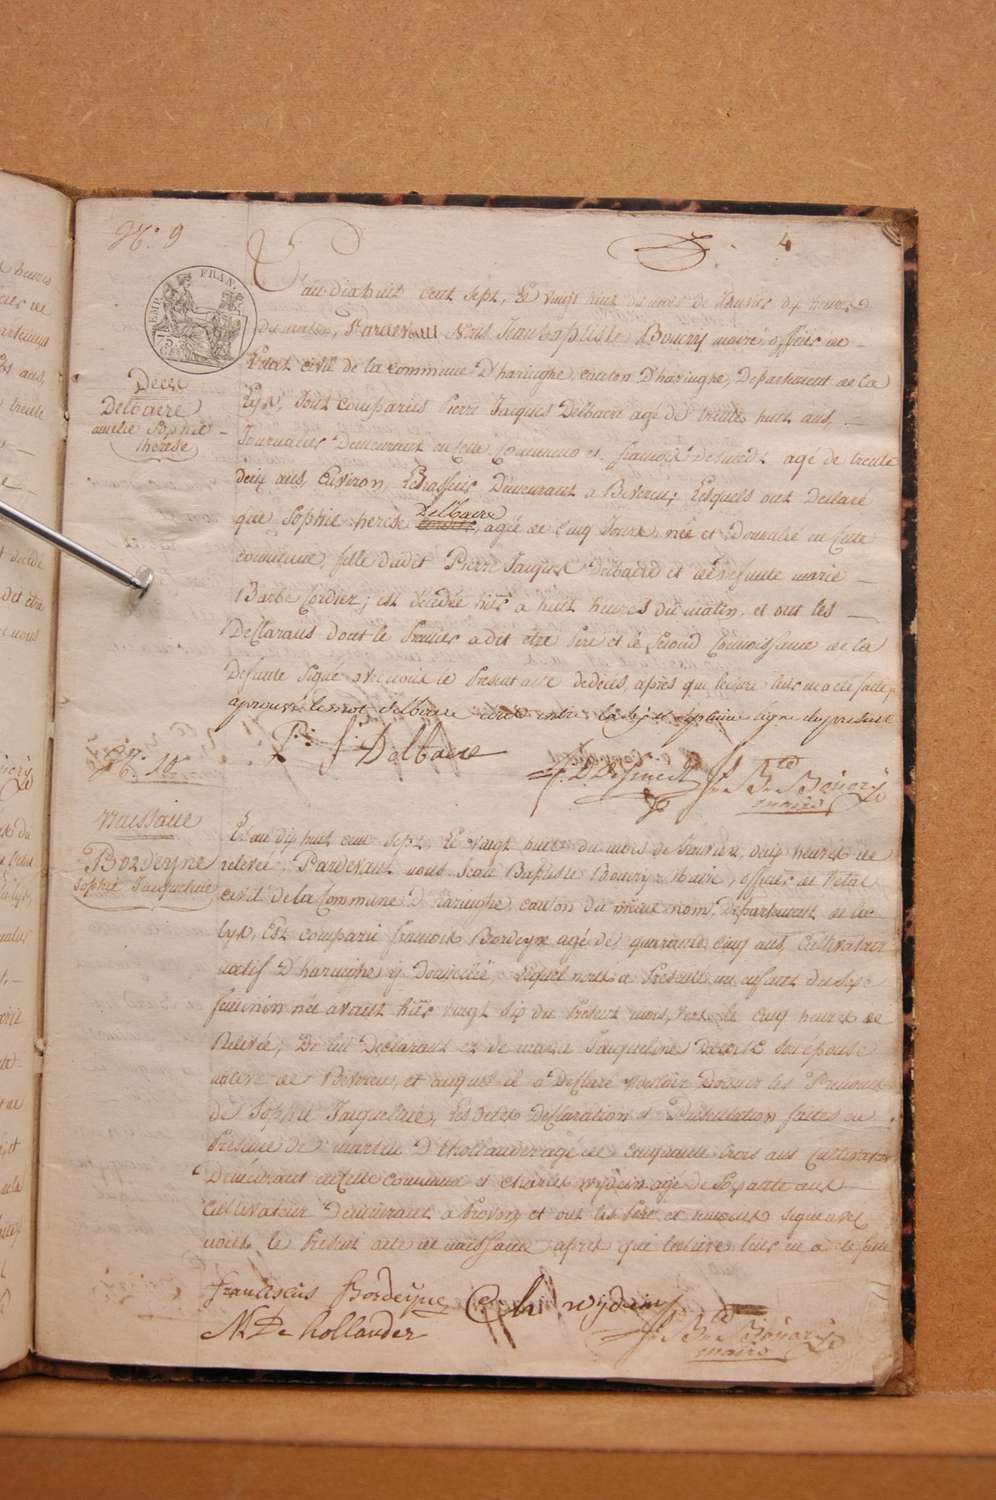 N.o 9
4
EMP. FRAN.
Decès
Delbaere
amelie Sophie
therese
L'an dixhuit cent sept, le vingt huit du mois de fevrier à 4 heures
du matin, Pardevant Nous Jean baptiste Bouery maire officier de
l'Etat civil de la commune D'haringhe, canton D'haringhe, Departement de la
Lys, sont comparus Pierre Jacques Delbaere agé de trente huit ans,
Journalier Demeurant en cette Commune et francois Desmedt agé de trente
deux ans Environ Demeurant a Beveren; Lesquels ont Declaré
que Sophie therese Delbaere, agée de Cinq Jours, née et Domiciliée en Cette
commune, fille dudit Pierre Jacques Delbaere et de defunte marie
Barbe Cordier; est decedée hier a huit heures du matin, et ont les
Declarans dont le Premier a dit etre Pere et le second Connoissance de la
Defunte signé avec nous le Present acte de decès, après que lecture leur en a eté faitte,
aprouvé le mot delbaere ecrit entre la sixieme et septieme ligne du present
P.r J. Delbaere
F. D. Desmedt
J.n B.te Bouery
maire
N.o 10
Naissance
Bordeyne
Sophie Jacqueline
L'an dix huit cent sept, le vingt huit du mois de fevrier, deux heures de
relevée Pardevant nous Jean Baptiste Bouery Maire, officier de l'etat
civil de la Commune D'haringhe canton du même nom, Departement de la
Lys, Est comparu francois Bordeyne agé de quarante cinq ans, Cultivateur
natif D'haringhe y Domicilié, Lequel nous a Presenté un enfant du sexe
feminin née avant hier vingt six du Present mois, vers les Cinq heures de
Relevée, De lui Declarant et de marie Jacqueline son epouse
native de Beveren, et auquel il a Declaré vouloir Donner les Prenoms
de Sophie Jacqueline, Les dites Declaration et Presentation faites en
Presence de martin D'hollander agé de cinquante trois ans Cultivateur
Demeurant en cette commune et charles wydein agé de soixante ans
cultivateur Demeurant a Proven et ont les Pere et temoins signé avec
nous le Present acte de naissance après que lecture leur en a eté faite
franciscus Bordeyne
Ch wydein
M. De hollander
J.n B.te Bouery
maire